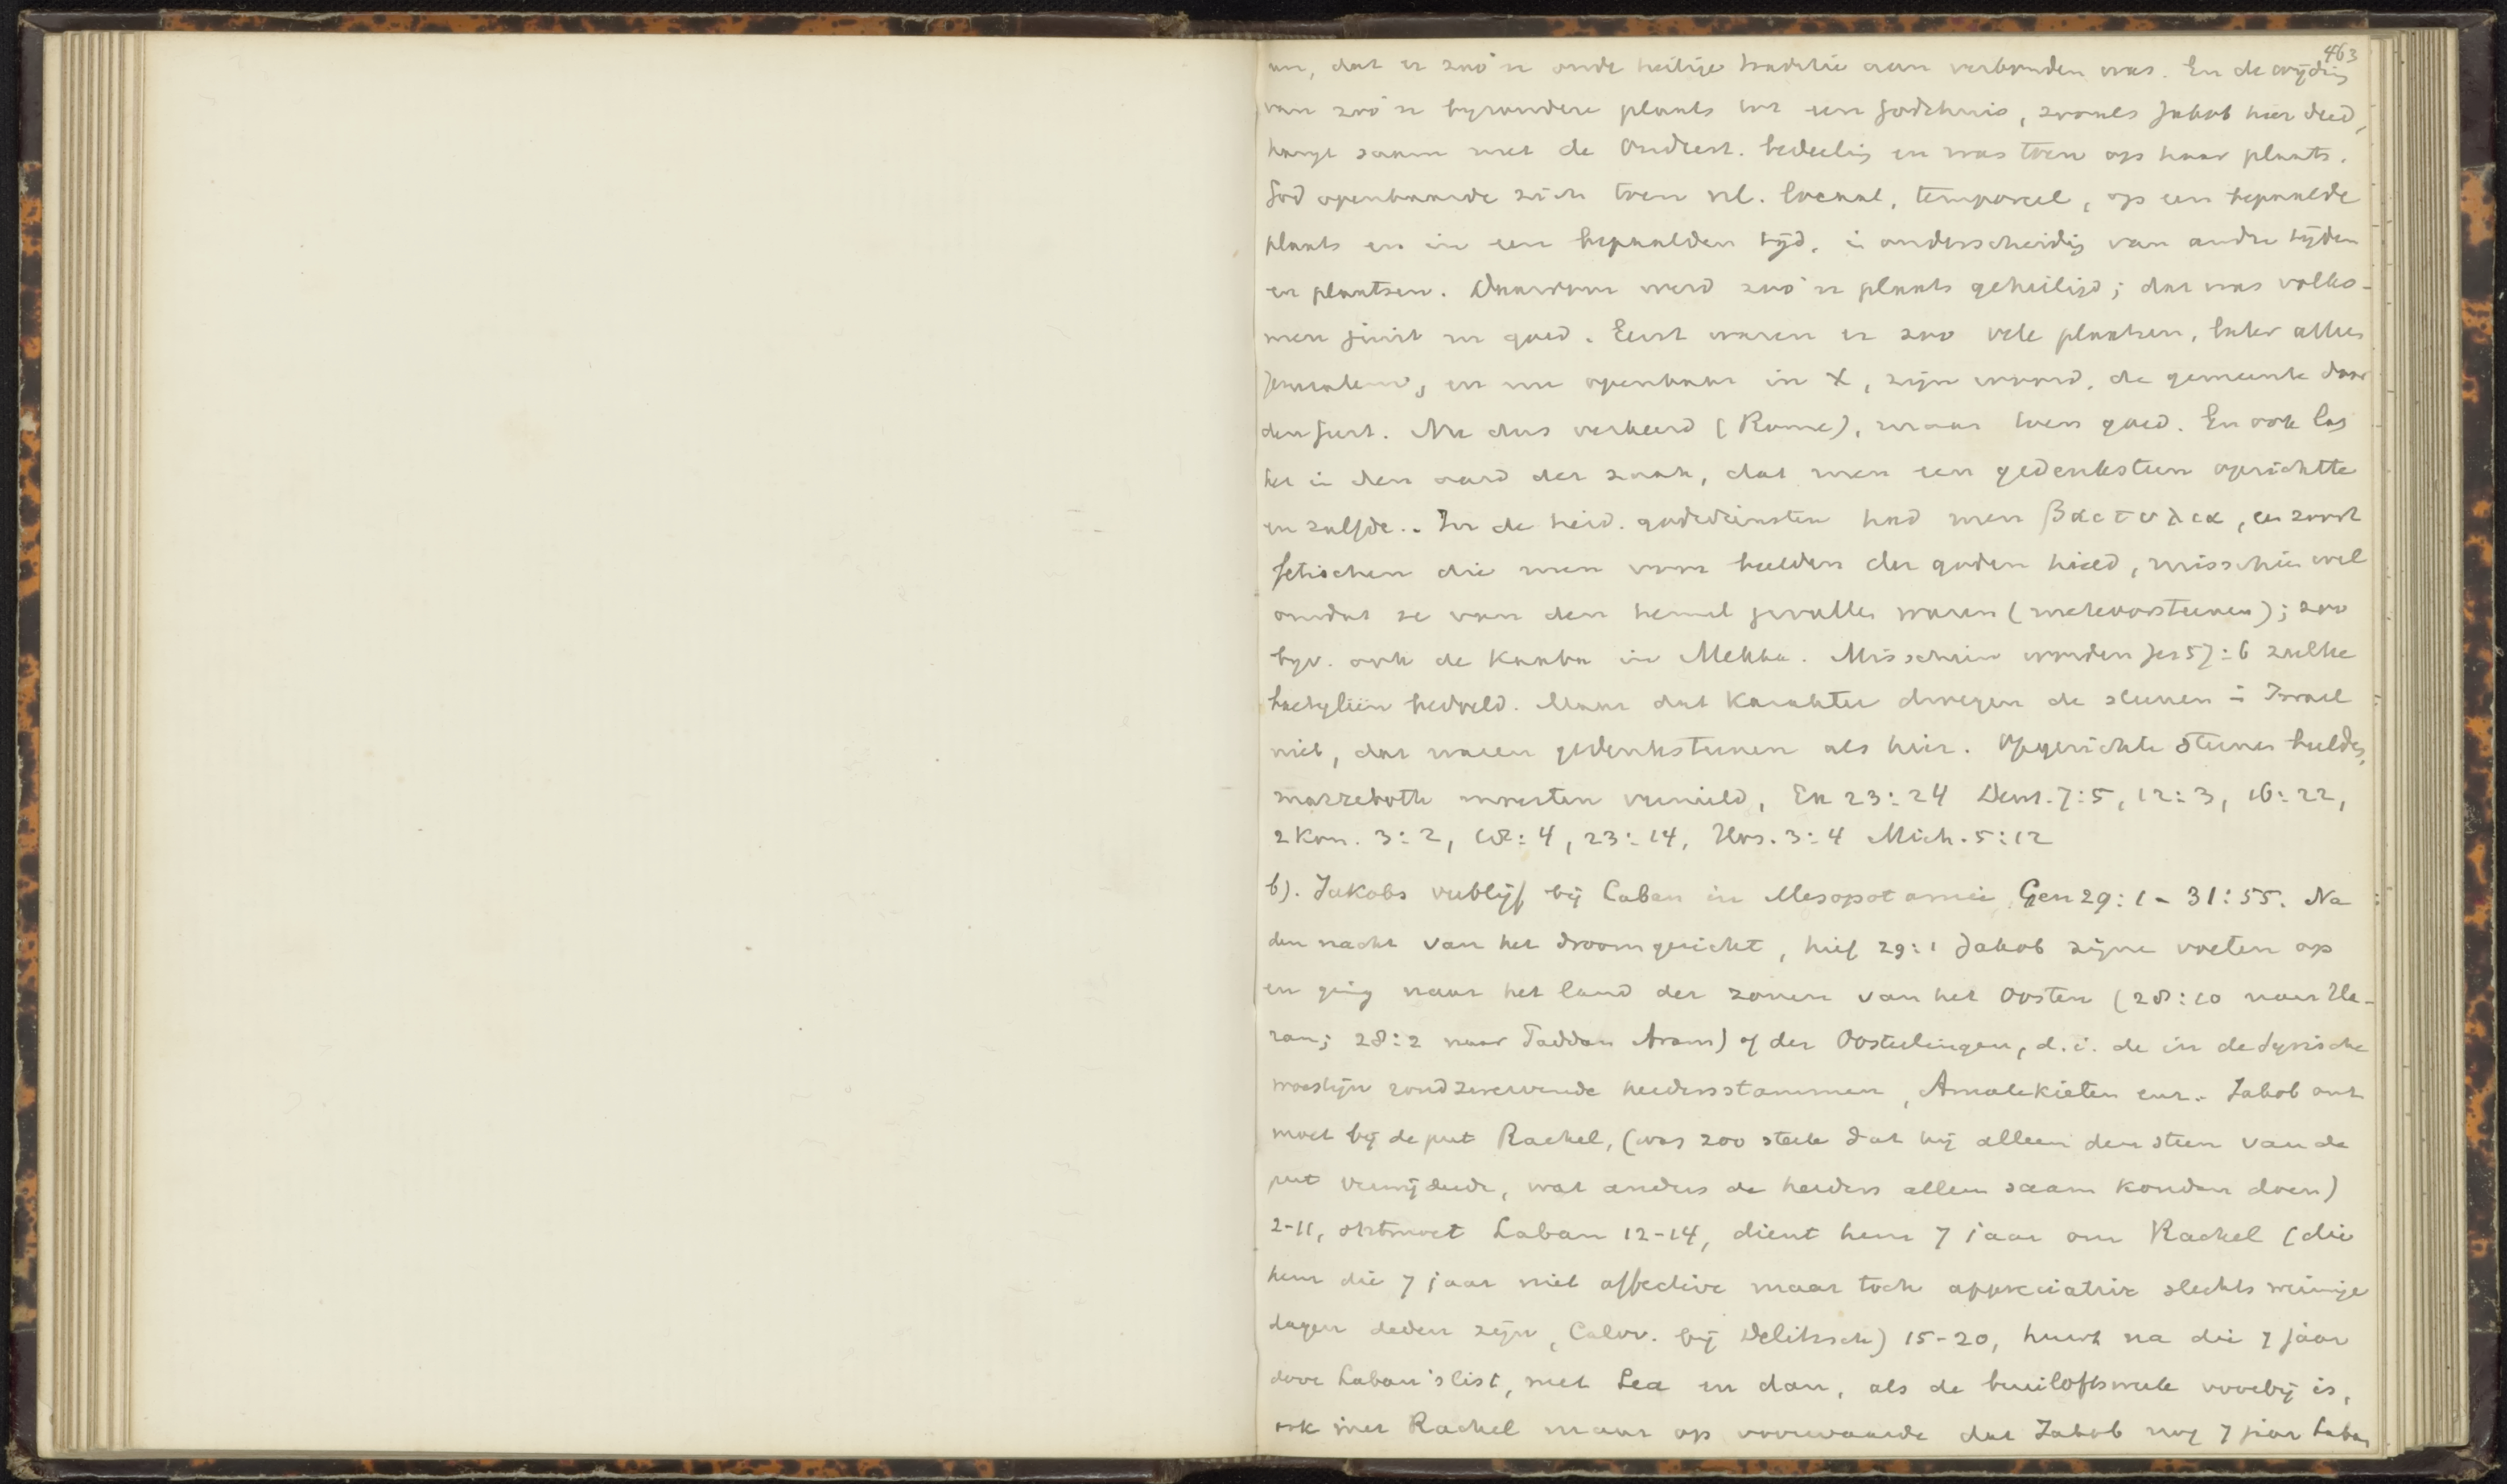 463
om, dat er zoo'n oude heilige traditie aan verbonden was. En de wijding
van zoo'n byzondere plaats tot een Godshuis, zooals Jakob hier deed,
hangt saam met de Oudtest. bedeeling en was toen op haar plaats.
God openbaarde zich toen nl. locaal, temporeel, op een bepaalde
plaats en in een bepaalden tijd, in onderscheiding van andere tijden
en plaatsen. Daarom werd zoo'n plaats geheiligd; dat was volko-
men juist en goed. Eerst waren er zoo vele plaatsen, later alleen
Jerusalem, en nu openbaar in X, zijn woord, de gemeente door
den Geest. Nu dus verkeerd (Rome), maar toen goed. En ook lag
het in den aard der zaak, dat men een gedenksteen oprichtte
en zalfde. In de heid. godsdiensten had men βαιτυλια, een soort
fetischen die men voor beelden der goden hield, misschien wel
omdat ze van den hemel gevallen waren (meteoorsteenen); zoo
byv. ook de Kaaba in Mekka. Misschien worden Jes 57:6 zulke
baetyliën bedoeld. Maar dat karakter droegen de steenen in Israel
niet, dat waren gedenksteenen als hier. Opgerichte steenen beelden,
mazzeboth moesten vernield, Ex 23:24 Deut. 7:5, 12:3, 16:22,
2 Kon. 3:2, 18:4, 23:14, Hos. 3:4 Mich. 5:12
b). Jakobs verblijf bij Laban in Mesopotamië, Gen 29:1 - 31:55. Na
den nacht van het droomgezicht, hief 29:1 Jakob zijne voeten op
en ging naar het land der zonen van het Oosten (28:10 naar Ha-
ran; 28:2 naar Paddan Aram) of der Oosterlingen, d.i. de in de Syrische
woestijn rondzwervende herdersstammen, Amalekieten enz. Jakob ont
moet bij de put Rachel, (was zoo sterk dat hij alleen den steen van de
put verwijderde, wat anders de herders alleen saam konden doen)
2-11, ontmoet Laban 12-14, dient hem 7 jaar om Rachel (die
hem die 7 jaar niet affective maar toch appreciative slechts weinige
dagen deden zijn, Calov. bij Delitzsch) 15-20, huwt na die 7 jaar
door Laban's list, met Lea en dan, als de bruiloftsweek voorbij is,
ook met Rachel maar op voorwaarde dat Jakob nog 7 jaar Laban